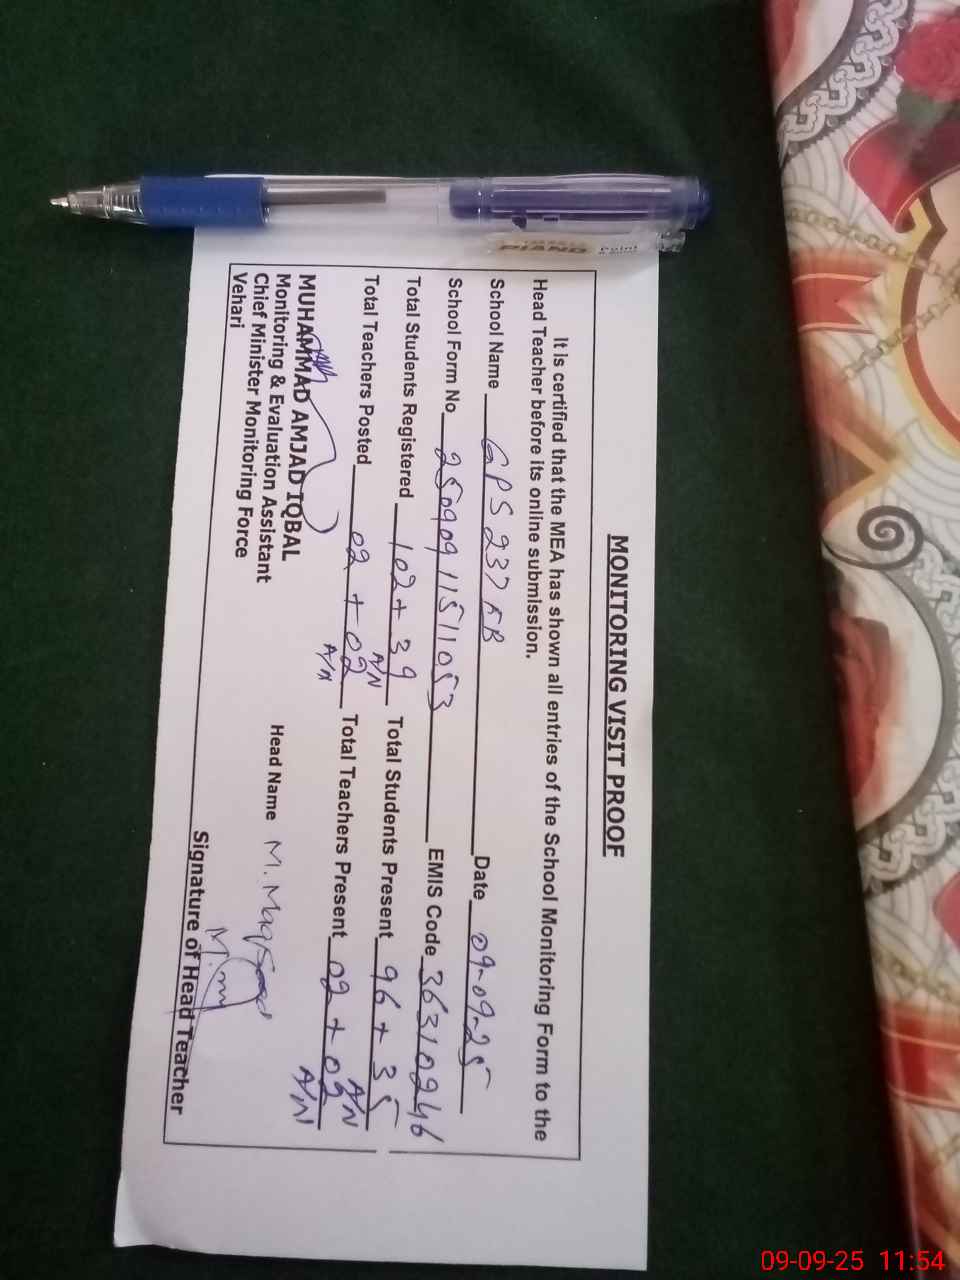 PIANO Point
MONITORING VISIT PROOF
It is certified that the MEA has shown all entries of the School Monitoring Form to the
Head Teacher before its online submission.
School Name GPS 237 EB Date 09-09-25
School Form No 25090911511053 EMIS Code 36310246
Total Students Registered 102 + 39 A/N Total Students Present 96 + 35 A/N
Total Teachers Posted 02 + 02 A/N Total Teachers Present 02 + 02 A/N
MUHAMMAD AMJAD IQBAL
Monitoring & Evaluation Assistant
Chief Minister Monitoring Force
Vehari
Head Name M. Maqsood
Signature of Head Teacher
09-09-25 11:54